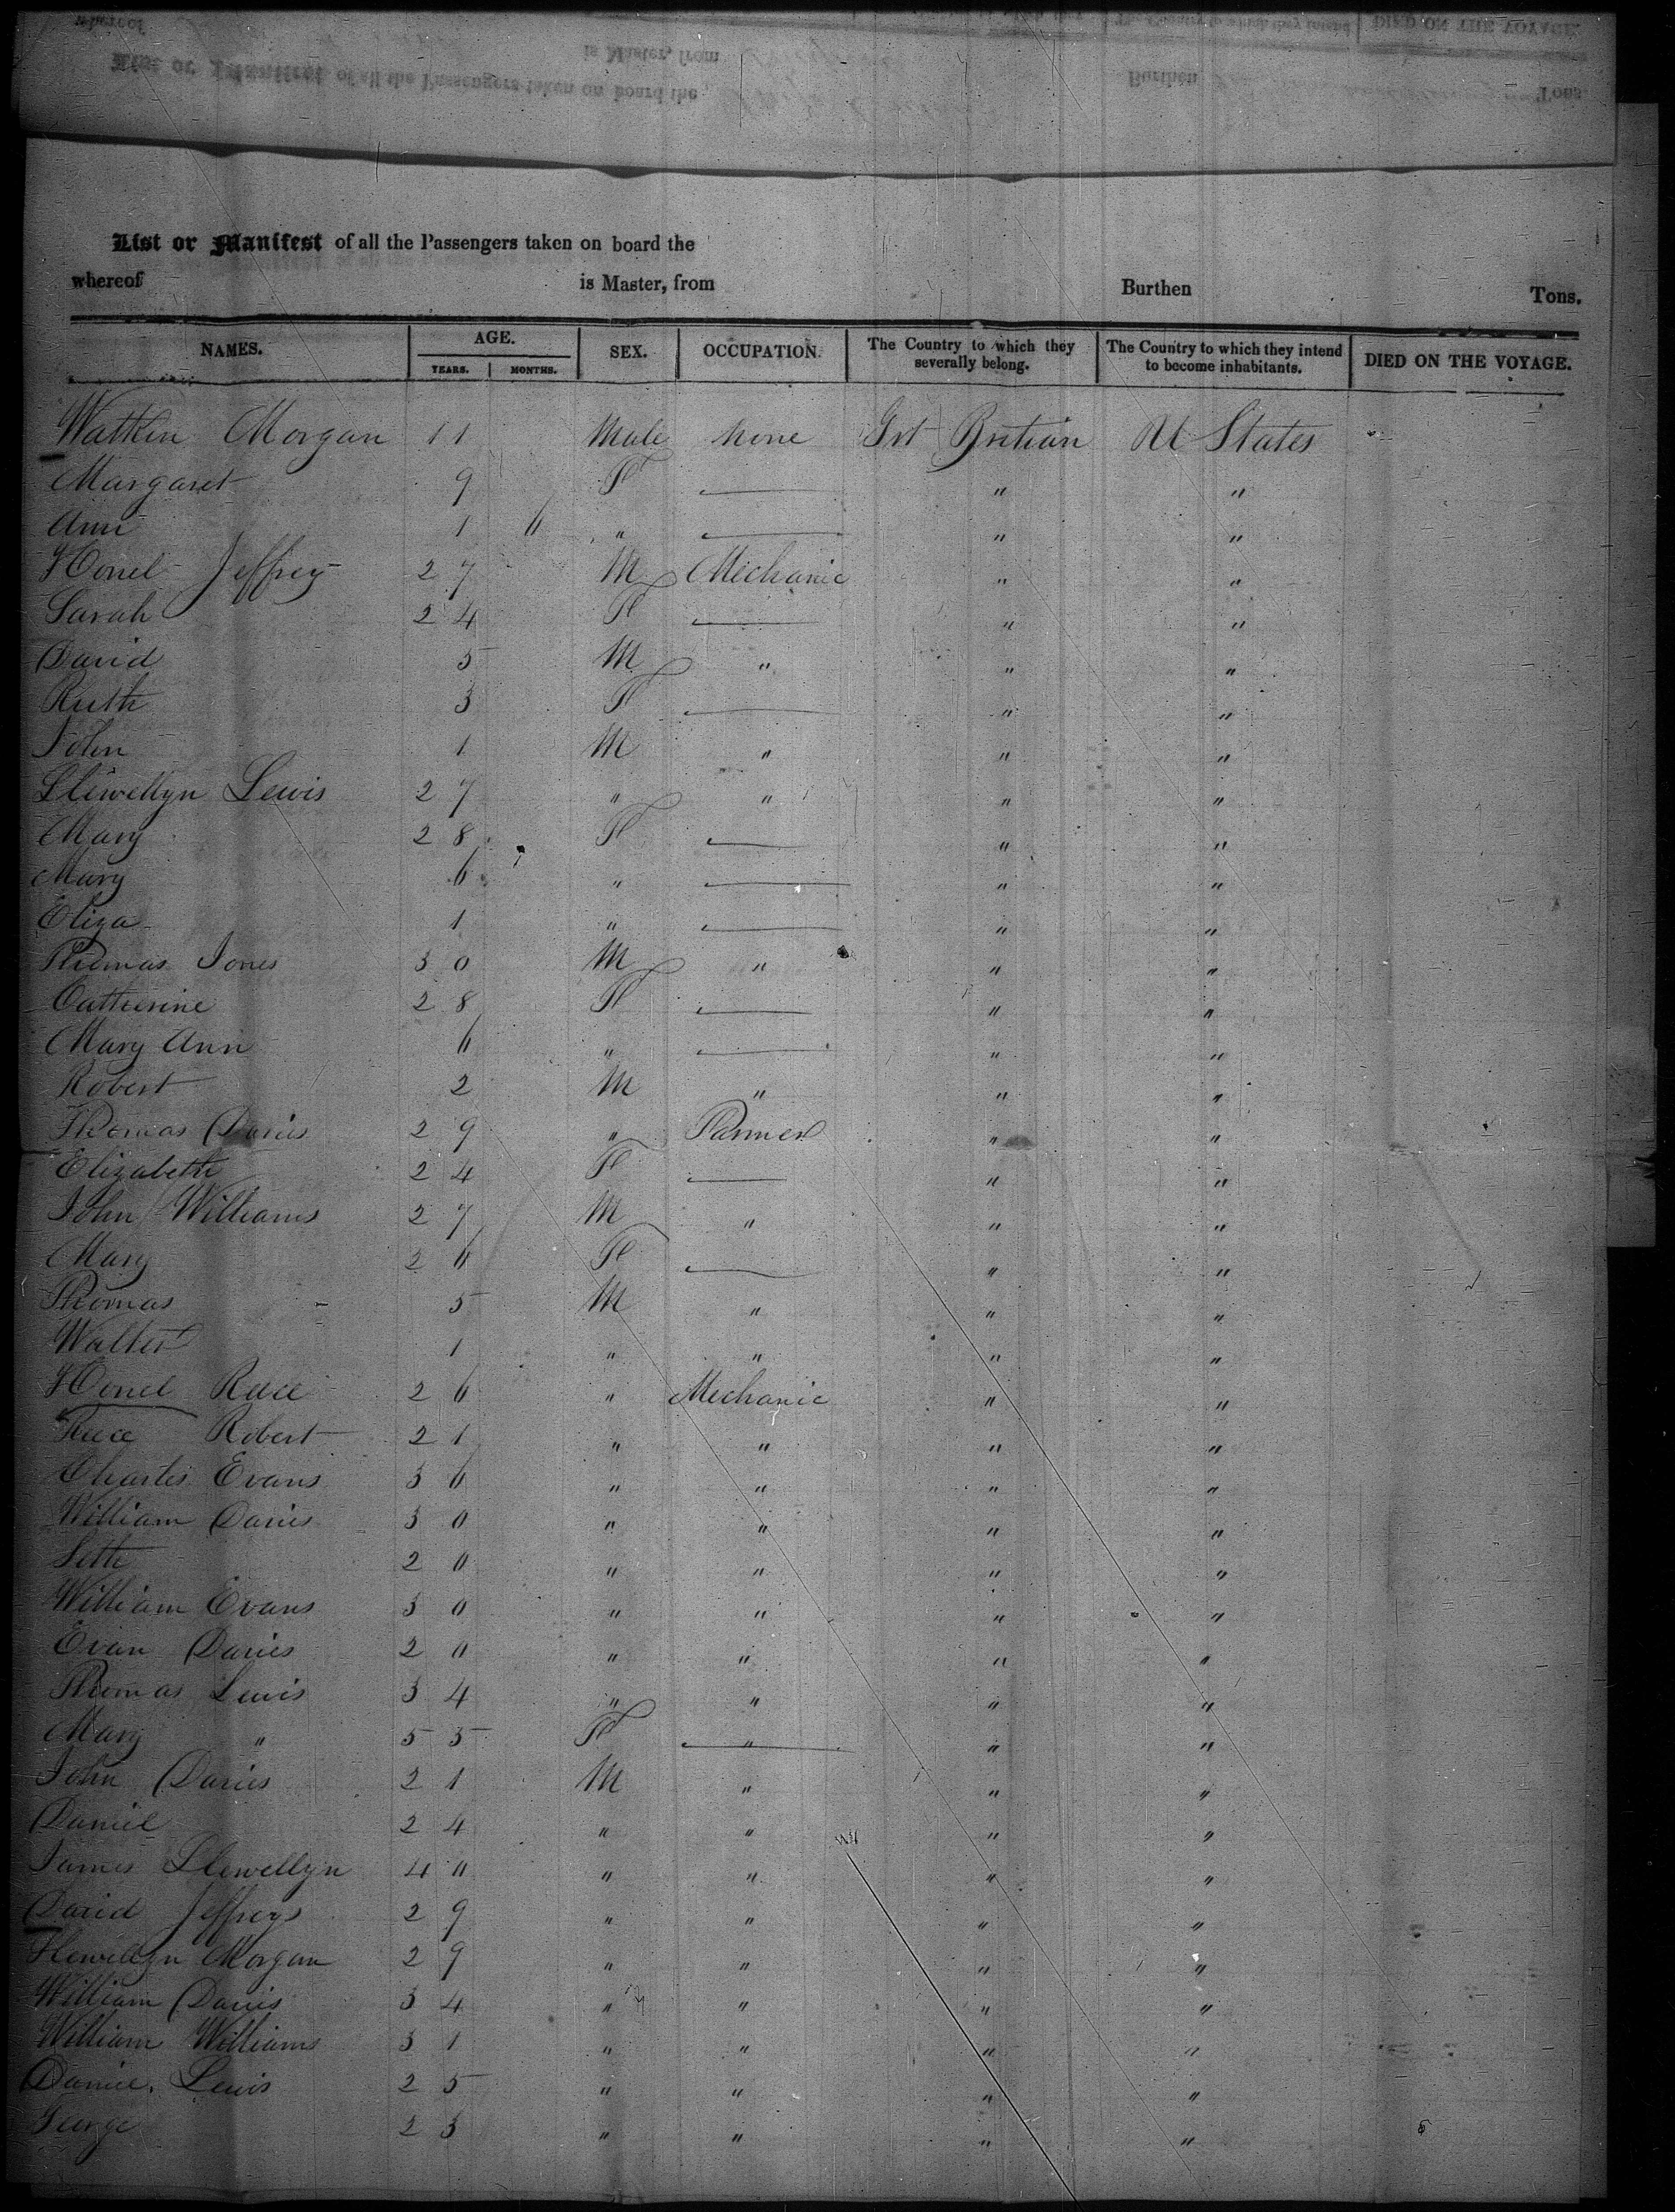 List or Manifest of all the Passengers taken on board the
whereof is Master, from Burthen Tons.
NAMES. AGE. YEARS. MONTHS. SEX. OCCUPATION. The Country to which they severally belong. The Country to which they intend to become inhabitants. DIED ON THE VOYAGE.
Watkin Morgan 11 Male None Grt Britian U States
Margaret 9 F — " "
Ann 1 6 " — " "
Honel Jeffrey 27 M Mechanic " "
Sarah 24 F — " "
David 5 M " " "
Ruth 3 F — " "
John 1 M " " "
Llewellyn Lewis 27 " " " "
Mary 28 F — " "
Mary 6 " — " "
Eliza 1 " — " "
Thomas Jones 30 M " " "
Catherine 28 F — " "
Mary Ann 6 " — " "
Robert 2 M " " "
Thomas Davies 29 " Farmer " "
Elizabeth 24 F — " "
John Williams 27 M " " "
Mary 26 F — " "
Thomas 5 M " " "
Walter 1 " " " "
Honel Reece 26 " Mechanic " "
Reece Robert 21 " " " "
Charles Evans 36 " " " "
William Davies 30 " " " "
Seth 20 " " " "
William Evans 30 " " " "
Evan Davies 20 " " " "
Thomas Lewis 34 " " " "
Mary " 55 F " " "
John Davies 21 M " " "
Daniel 24 " " " "
James Llewellyn 40 " " " "
David Jeffreys 29 " " " "
Llewellyn Morgan 29 " " " "
William Davis 34 " " " "
William Williams 31 " " " "
Daniel Lewis 25 " " " "
George 23 " " " "